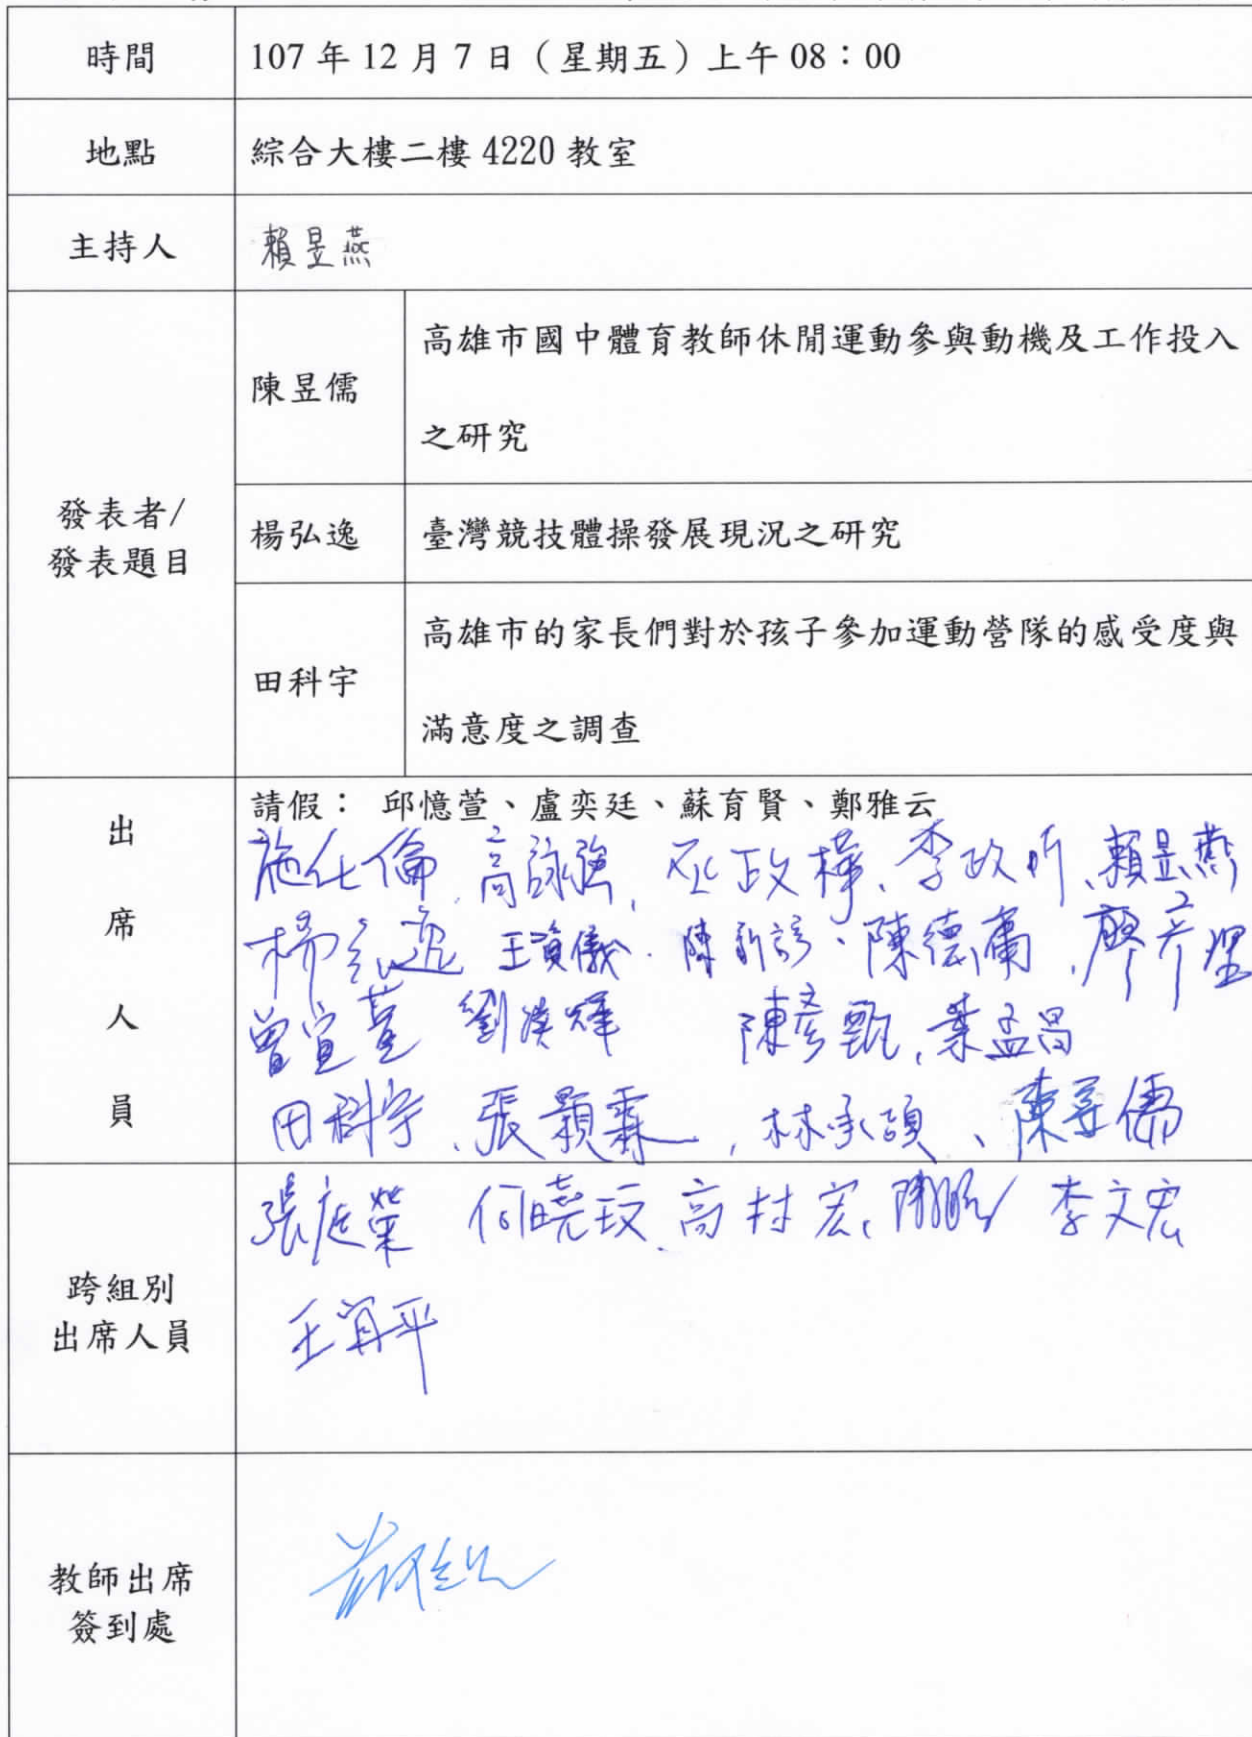 時間
107 年 12 月 7 日（星期五）上午 08：00
地點
綜合大樓二樓 4220 教室
主持人
賴昱燕
發表者/
發表題目
陳昱儒
高雄市國中體育教師休閒運動參與動機及工作投入
之研究
楊弘逸
臺灣競技體操發展現況之研究
田科宇
高雄市的家長們對於孩子參加運動營隊的感受度與
滿意度之調查
出
席
人
員
請假： 邱憶萱、盧奕廷、蘇育賢、鄭雅云
施仕倫、高詠強、政樺、李政昕、賴昱燕
楊弘逸 王資儀、陳新諺、陳德庸、廖彥理
曾宣萱 劉漢輝 陳彥甄、葉孟昌
田科宇、張顥霖、林承頤、陳昱儒
跨組別
出席人員
張庭榮 何曉玫、高村宏、李文宏
王宜平
教師出席
簽到處